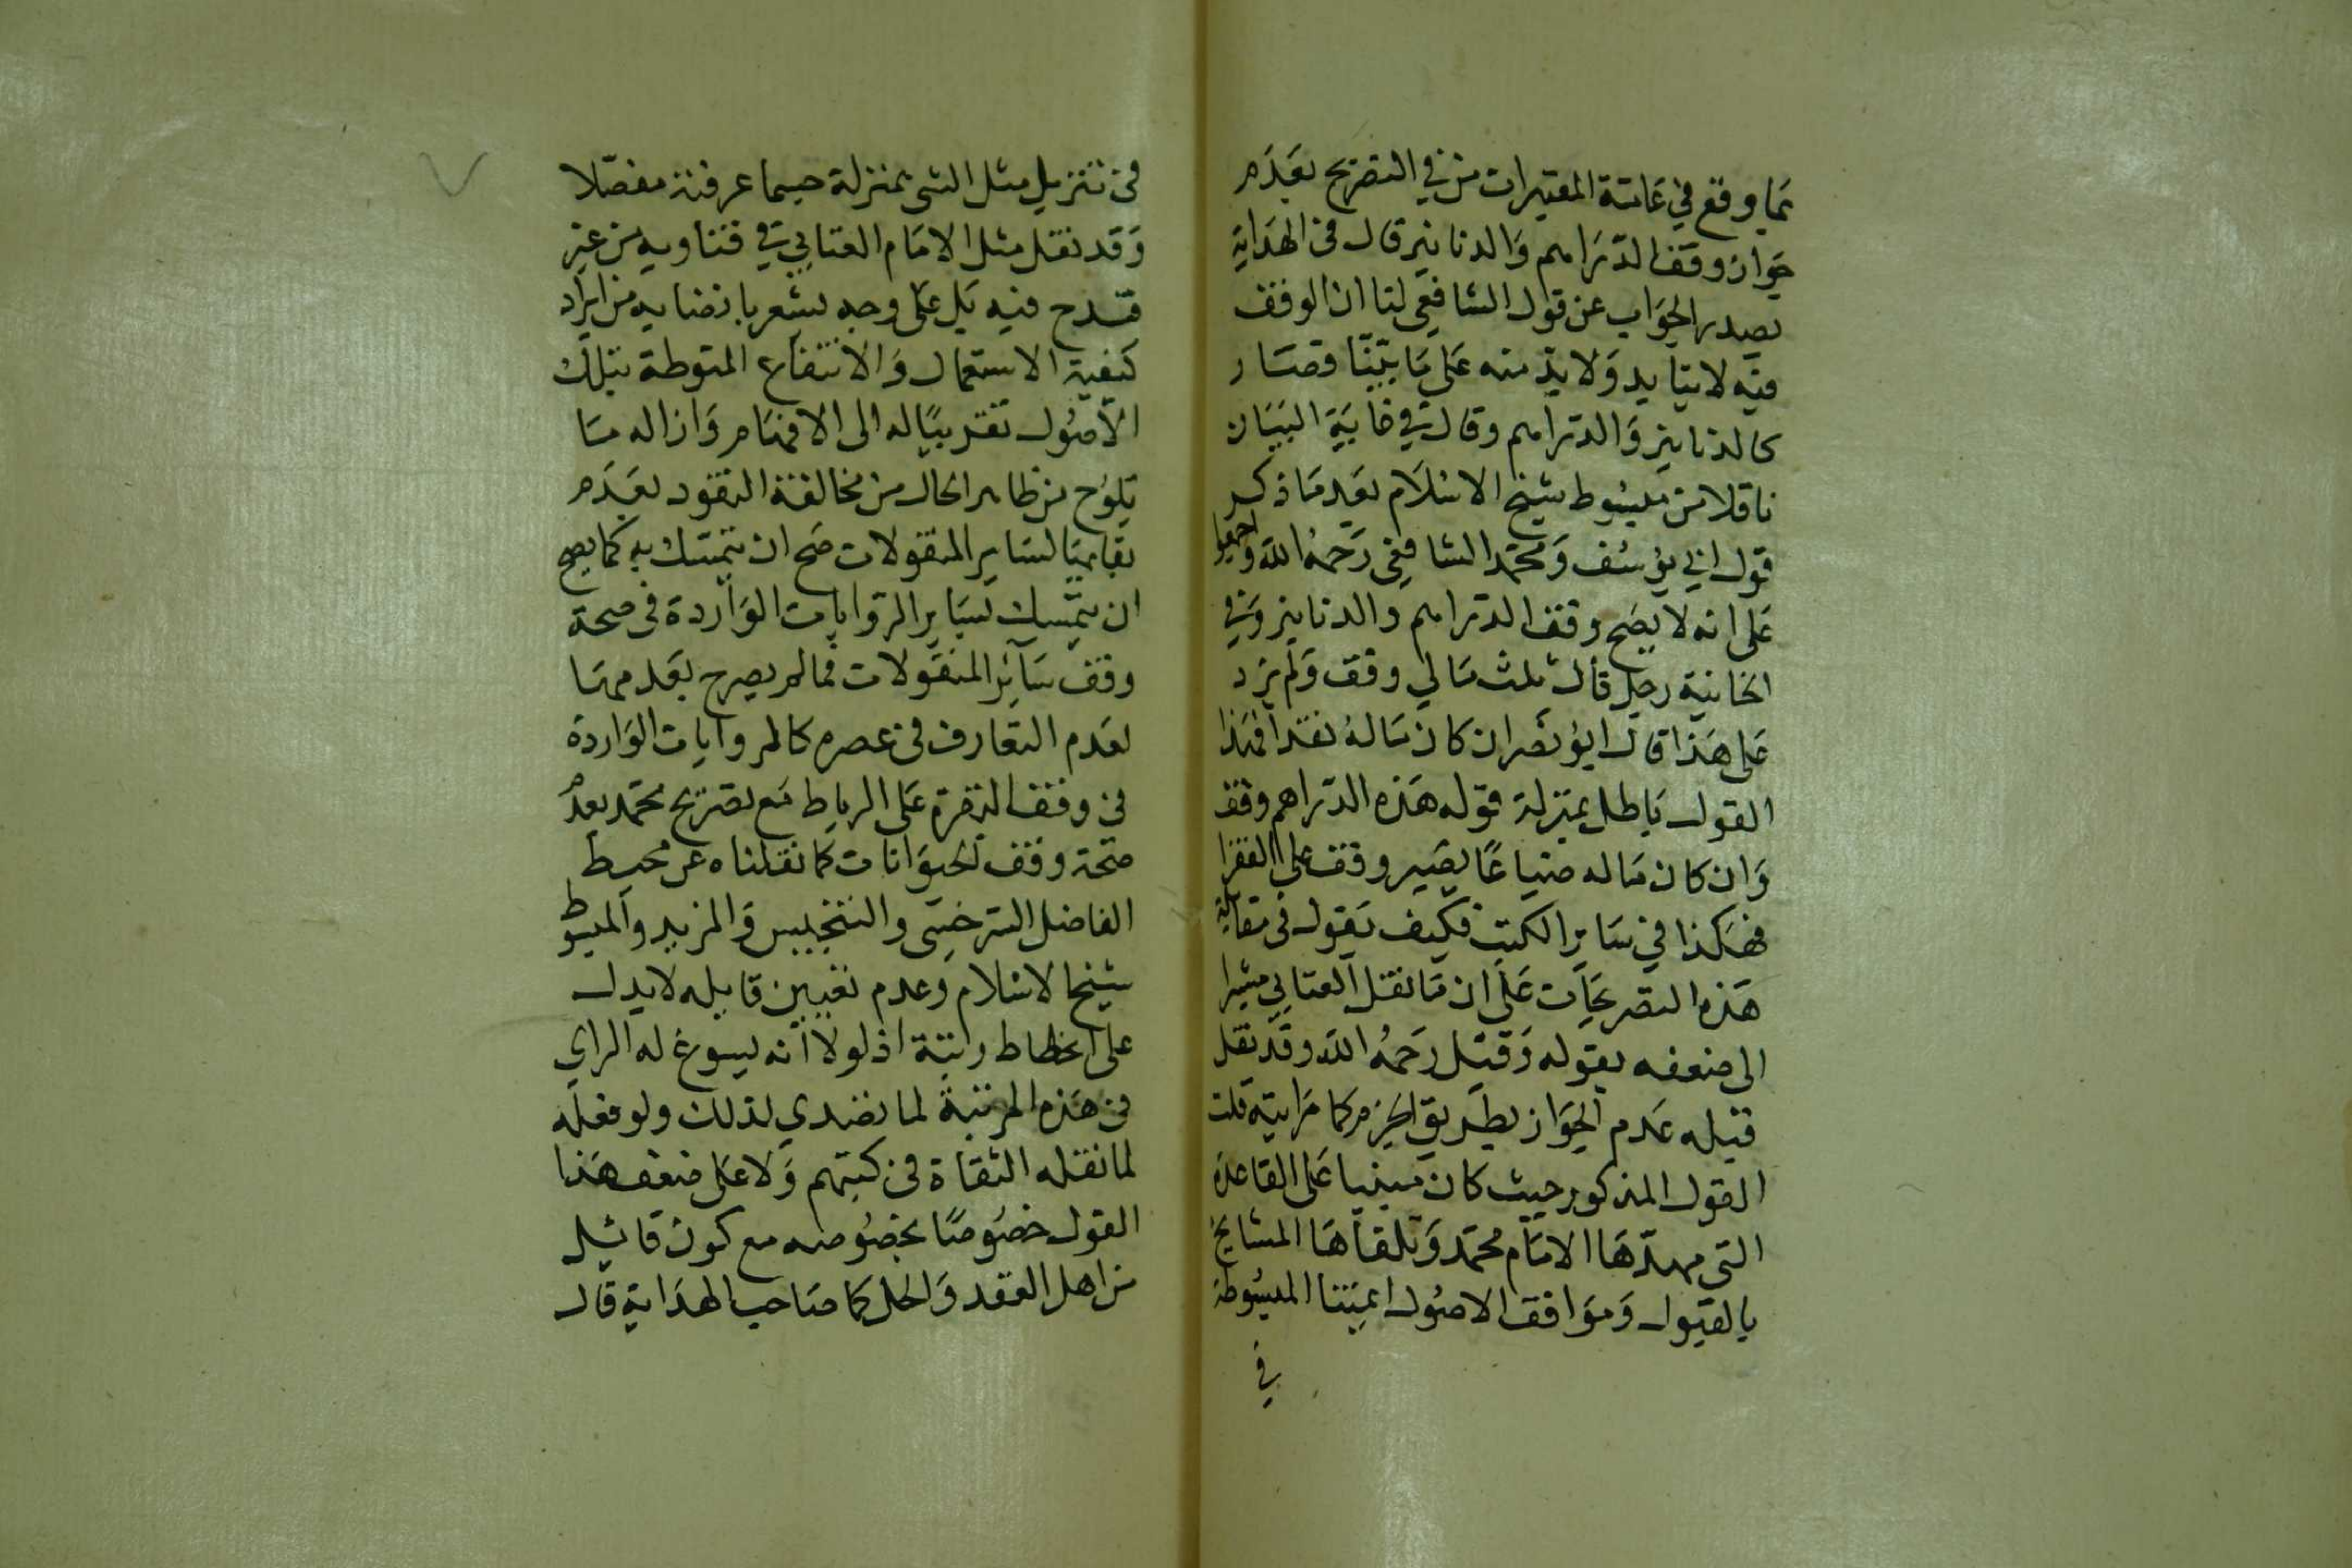 بما وقع في عامة المعتبرات من في التصريح بعدم
جواز وقف الدراهم والدنانير قال في الهداية
بصدر الجواب عن قول الشافعي لنا ان الوقف
فيه لا يتأيد ولا بد منه على ما بيناه فصار
كالدنانير والدراهم وقال في غاية البيان
ناقلا من مبسوط شيخ الاسلام بعد ما ذكر
قول ابي يوسف ومحمد الشافعي رحمه الله واجمعوا
على انه لا يصح وقف الدراهم والدنانير وفي
الخانية رجل قال ثلث مالي وقف ولم يزد
على هذا قال ابو نصر ان كان ماله نقدا فهذا
القول باطل بمنزلة قوله هذه الدراهم وقف
وان كان ماله ضياعا يصير وقف على الفقرا
فهكذا في ساير الكتب فكيف نقول في مقابلة
هذه التصريحات على ان ما نقل العتابي مشيرا
الى ضعفه بقوله وقيل رحمه الله وقد نقل
قبله عدم الجواز بطريق الجزم كما رايته قلت
القول المذكور حيث كان مبنيا على القاعدة
التي مهدها الامام محمد وتلقاها المشايخ
بالقبول وموافق الاصول ايمتنا المبسوطة
في
في تنزيل مثل الشي بمنزلة حسبما عرفته مفصلا
وقد نقل مثل الامام العتابي في فتاويه من غير
قدح فيه بل على وجه يشعر بارتضايه من ايراد
كيفية الاستعمال والانتفاع المنوطة بتلك
الاصول تقريبا له الى الافهام وازاله ما
يلوح من ظاهر الحال من مخالفة النقود بعدم
بقايها لساير المنقولات صح ان يتمسك به كما يصح
ان يتمسك بساير الروايات الواردة في صحة
وقف سآئر المنقولات فما لم يصرح بعدمها
لعدم التعارف في عصره كالروايات الواردة
في وقف البقرة على الرباط مع تصريح محمد بعدم
صحة وقف الحيوانات كما نقلناه عن محيط
الفاضل السرخسي والتنجيس والمزيد والمبسوط
شيخ الاسلام وعدم تعيين قايله لا يدل
على انحطاط رتبته اذ لولا انه يسوغ له الراي
في هذه المرتبة لما تصدي لذلك ولو فعله
لما نقله الثقاة في كتبهم ولا على ضعف هذا
القول خصوصا بخصوصه مع كون قائيله
من اهل العقد والحل كما صاحب الهداية قال